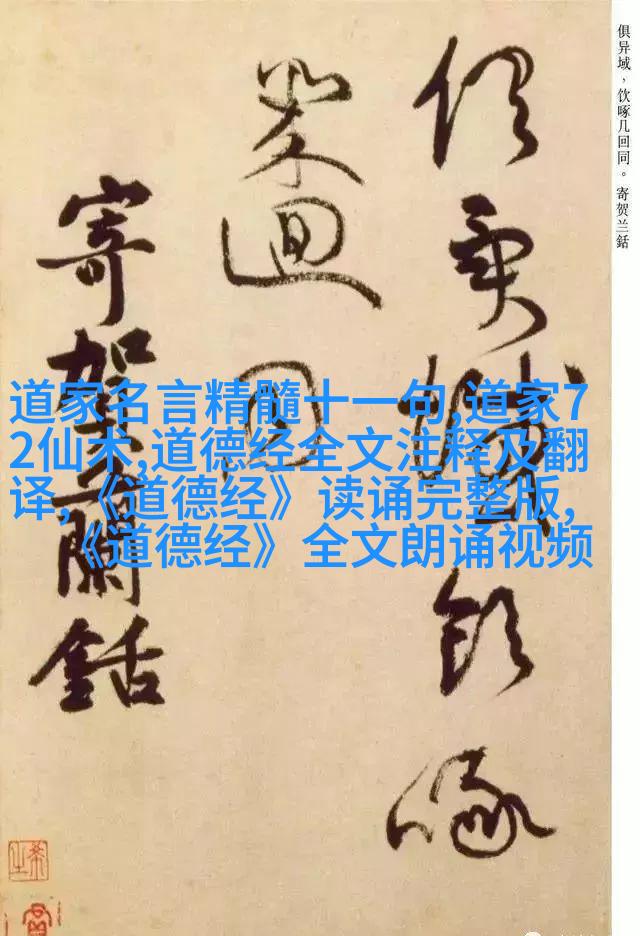 俱异域，饮啄几回同。寄贺兰铦
俱異域飲啄
幾迴同
寄賀蘭銛
道家名言精髓十一句,道家7
2仙术,道德经全文注释及翻
译,《道德经》读诵完整版,
《道德经》全文朗诵视频